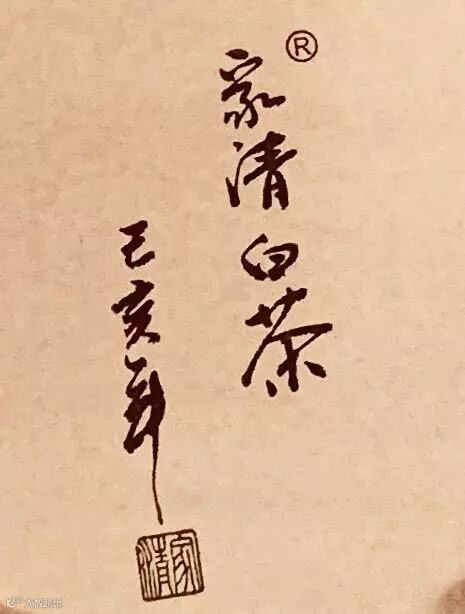 家清白茶®
己亥年
家清